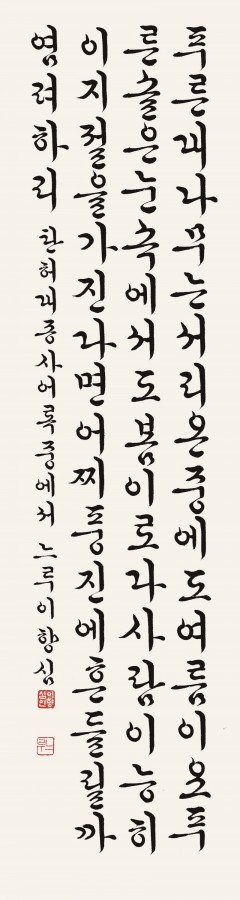 푸른대나무는서리온중에도여름이오푸
른솔은눈속에서도봄이로다사람이능히
이지절을가진다면어찌풍진에흔들릴까
염려하리 탄허대종사어록중에서 느루이향심